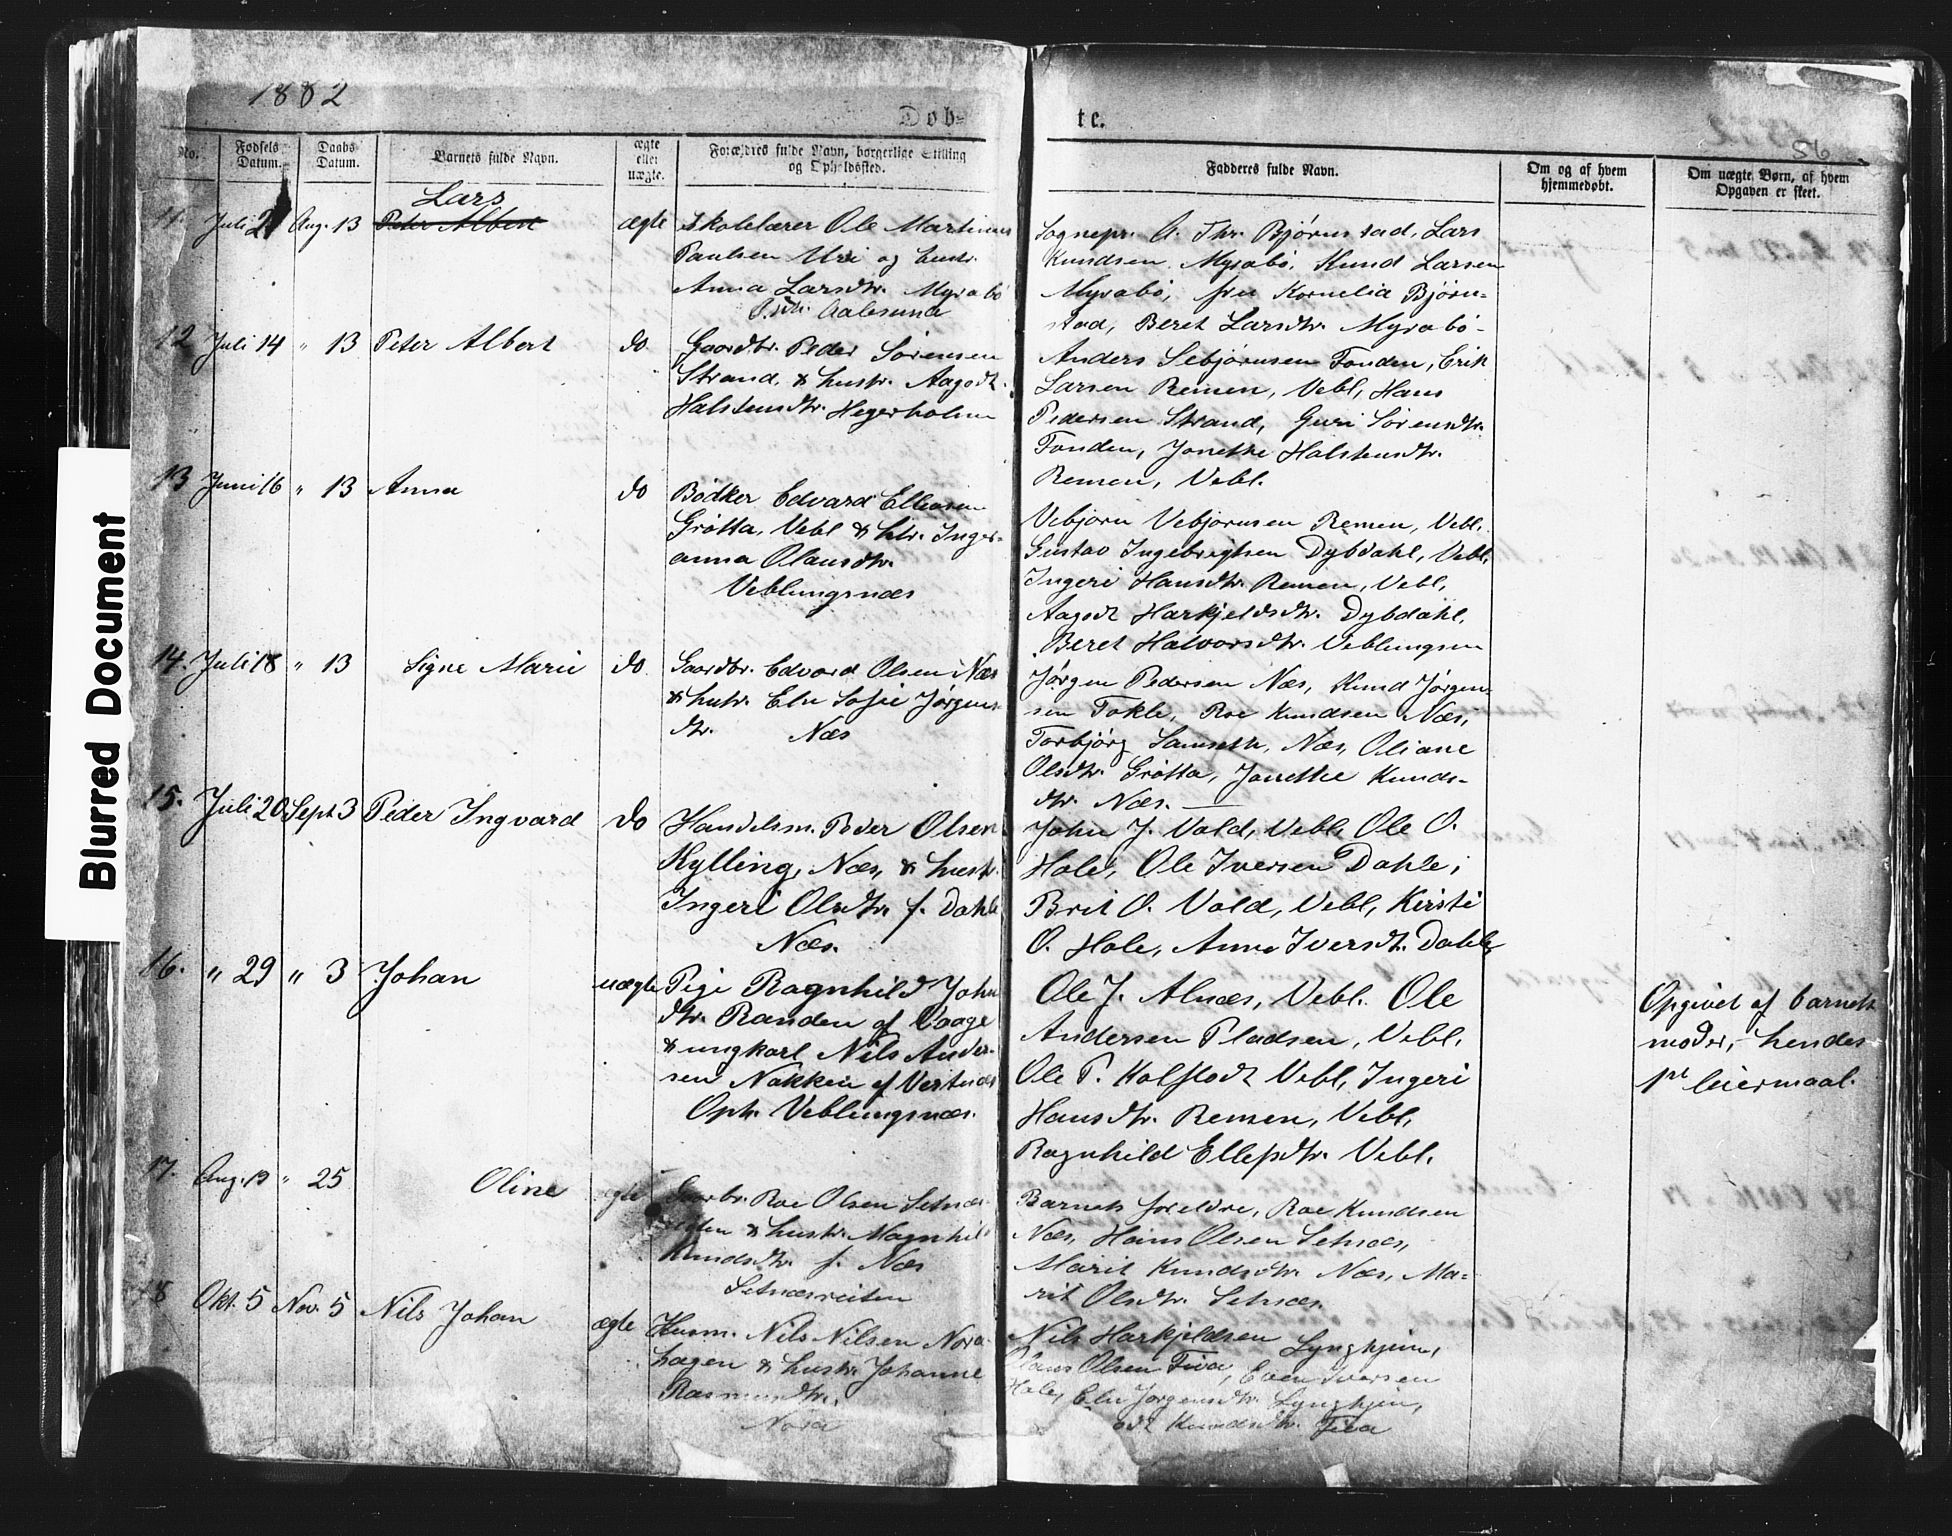 1882
Døb-
te.
56
Blurred Document
No.
Fødsels Datum.
Daabs Datum.
Barnets fulde Navn.
ægte eller uægte.
Forældres fulde Navn, borgerlige Stilling og Opholdssted.
Fadderes fulde Navn.
Om og af hvem hjemmedøbt.
Om uægte Børn, af hvem Opgaven er skeet.
Lars
11. Juli 2 Aug. 13 Peter Albert ægte Skolelærer Ole Martinus
Paulsen Uri og hustr.
Anna Larsdtr. Myrabö
Aalesund
Sognepr. A. Thr. Bjørnstad, Lars
Knudsen Myrabö, Knud Larsen
Myrabö, fru Kornelia Bjørn-
stad, Beret Larsdtr. Myrabö
12 Juli 14 " 13 Peter Albert do. Gaardbr. Peder Sørensen
Strand, & hustr. Aagodt
Halstensdtr. Hegerholm
Anders Sebjørnsen Fonden, Erik
Larsen Remen, Vebl, Hans
Pedersen Strand, Guri Sørensdtr.
Fonden, Jonetta Halstensdtr.
Remen, Vebl.
13 Juni 16 " 13 Anna do Bødker Edvard Elleasen
Grötta, Vebl & htr. Inger-
anna Olausdtr.
Veblungsnæs
Vebjørn Vebjørnsen Remen, Vebl.
Gustav Ingebrigtsen Dybdahl, Vebl,
Ingeri Hansdtr. Remen, Vebl,
Aagodt Harkjeldsdtr. Dybdahl,
Beret Halvorsdtr. Veblungsn
14. Juli 18 " 13 Signe Marie do Gaardbr. Edvard Olsen Næs
& hustr. Eln Sofie Jørgens-
dtr. Næs
Jørgen Pedersen Næs, Knud Jørgen-
sen Tokle, Roe Knudsen Næs,
Torbjørg Samseth, Næs, Oliane
Olsdtr. Grötta, Jonettee Knuds-
dtr. Næs.
15. Juli 20 Sept 3 Peder Ingvard do Handelsm. Peder Olsen
Kylling, Næs, & hustr.
Ingeri Olsdtr. f. Dahle
Næs.
John J. Vold, Vebl, Ole O.
Hole, Ole Iversen Dahle,
Brit O. Vold, Vebl, Kirsti
O. Hole, Anne Iversdt. Dahle
16. " 29 " 3 Johan uægte Pige Ragnhild John
dtr. Randen af Vaage
& ungkarl Nils Ander-
sen Nakken af Vestnæs
Oph. Veblungsnæs.
Ole J. Alnæs, Vebl. Ole
Andersen Pladsen, Vebl.
Ole P. Kolflodt Vebl, Ingeri
Hansdtr. Remen, Vebl,
Ragnhild Ellefsdtr. Vebl.
Opgivet af barnets
moder, hendes
1ste leiermaal.
17. Aug. 19 " 25 Oline ægte Gaardbr. Roe Olsen Setnæs-
& hustr. Magnhild
Knudsdtr. f. Næs
Setnæsreiten
Barnets foreldre, Roe Knudsen
Næs, Hans Olsen Setnæs,
Marit Knudsdtr. Næs, Ma-
rit Olsdtr. Setnæs.
18 Okt. 5 Nov. 5 Nils Johan ægte Husm. Nils Nilsen Nora-
hagen & hustr. Johanne
Rasmusdtr.
Nora
Nils Harkjeldsen Lyngheim,
Olsen Fiva, Even Iversen
Hole, Eln Jørgensdtr. Lyngheim,
Knudsdtr. Fiva